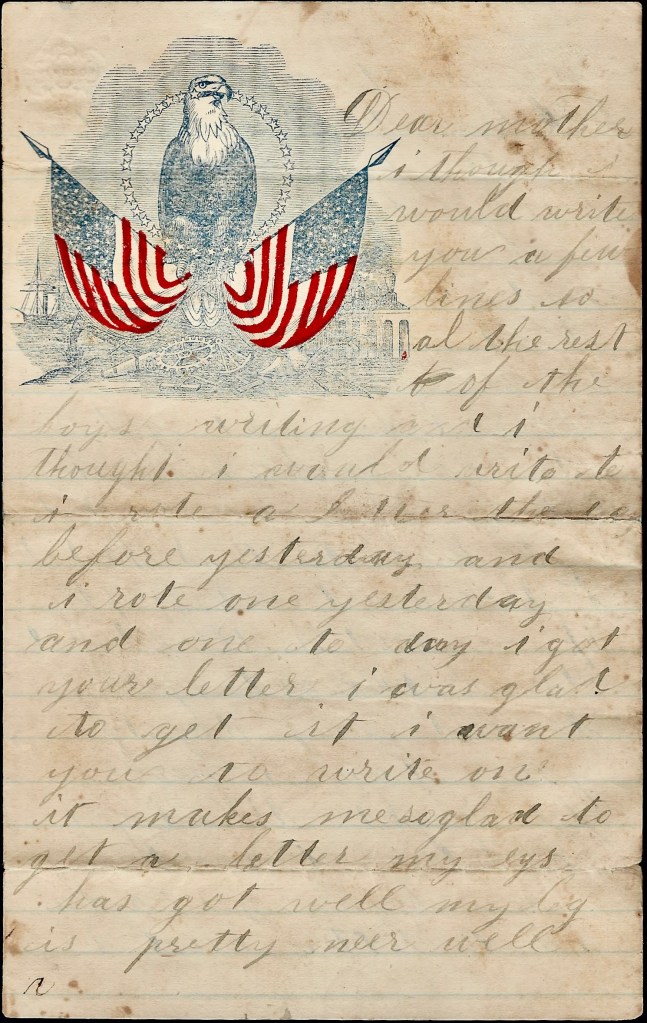 Dear mother
i though i
would write
you a few
lines so
al the rest
t of the
boys writing and i
thought i would write to
i rote a letter the day
before yesterday and
i rote one yesterday
and one to day i got
youre letter i was glad
to get it i want
you to write on
it makes me so glad to
get a letter my eys
has got well my
is pretty neer well